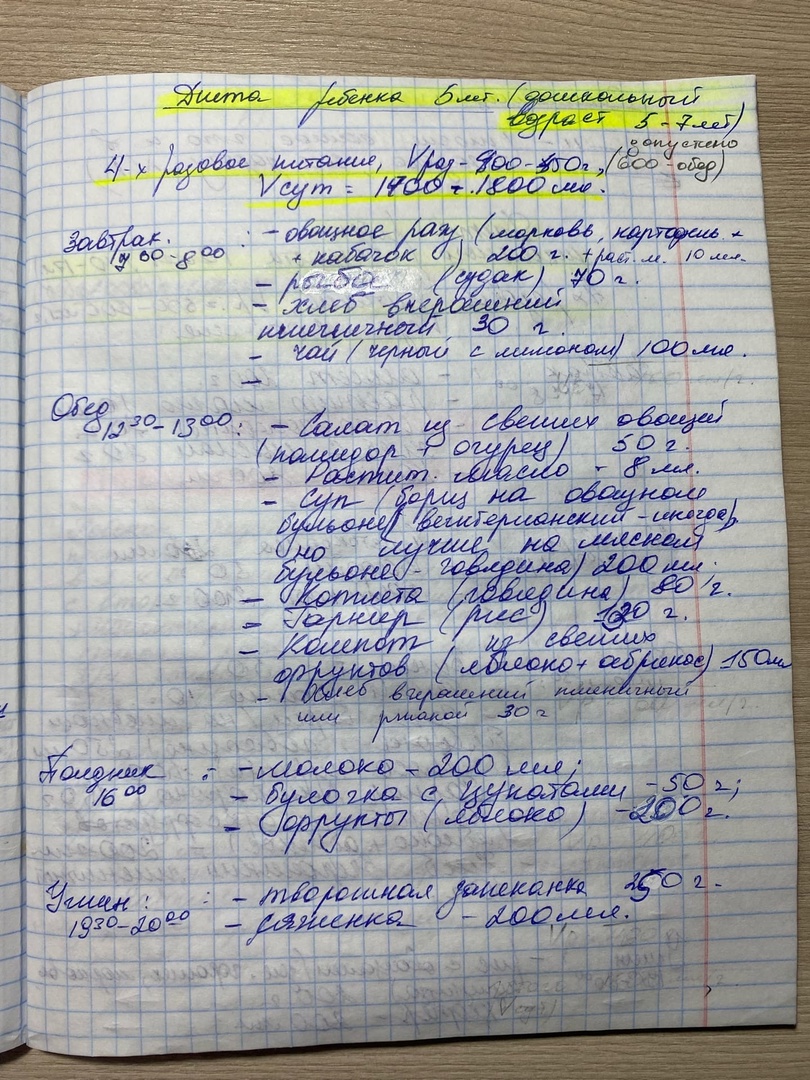 Диета ребенка 5 лет. (дошкольный
возраст 5-7 лет)
допустено
4-х разовое питание, Vраз - 400-450г, (600 - обед)
Vсут = 1700 - 1800 мл.
Завтрак. : - овощное рагу (морковь, картофель +
7 00 - 8 00 + кабачок) 200 г. + раст. м. 10 мл.
- рыба (судак) 70 г.
- хлеб вчерашний
пшеничный 30 г.
- чай (черный с лимоном) 100 мл.
-
Обед
12 30 - 13 00 : - Салат из свежих овощей
(помидор + огурец) 50 г.
- Растит. масло - 8 мл.
- Суп (борщ на овощном
бульоне/ вегитерианский - иногда,
но лучше на мясном
бульоне - говядина) 200 мл.
- Котлета (говядина) 80 г.
- Гарнир (рис) г.
- Компот из свежих
фруктов (яблоко + абрикос) 150 мл
- Хлеб вчерашний пшеничный
или ржаной 30 г
Полдник : - молоко - 200 мл;
16 00 - булочка с цукатами - 50 г;
- Фрукты (яблоко) - 200 г.
Ужин : : - творожная запеканка 250 г.
19 30 - 20 00 - ряженка - 200 мл.